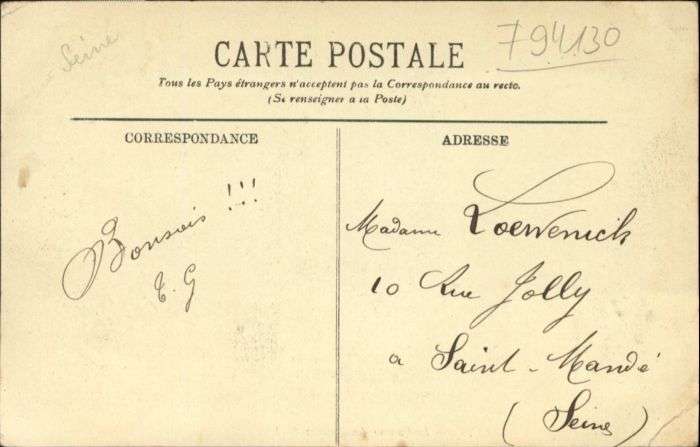 Seine
794130
CARTE POSTALE
Tous les Pays étrangers n'acceptent pas la Correspondance au recto.
(Se renseigner a la Poste)
CORRESPONDANCE
ADRESSE
Bonsoir !!!
T. G
Madame Loewenick
10 Rue Jolly
a Saint-Mandé
(Seine)